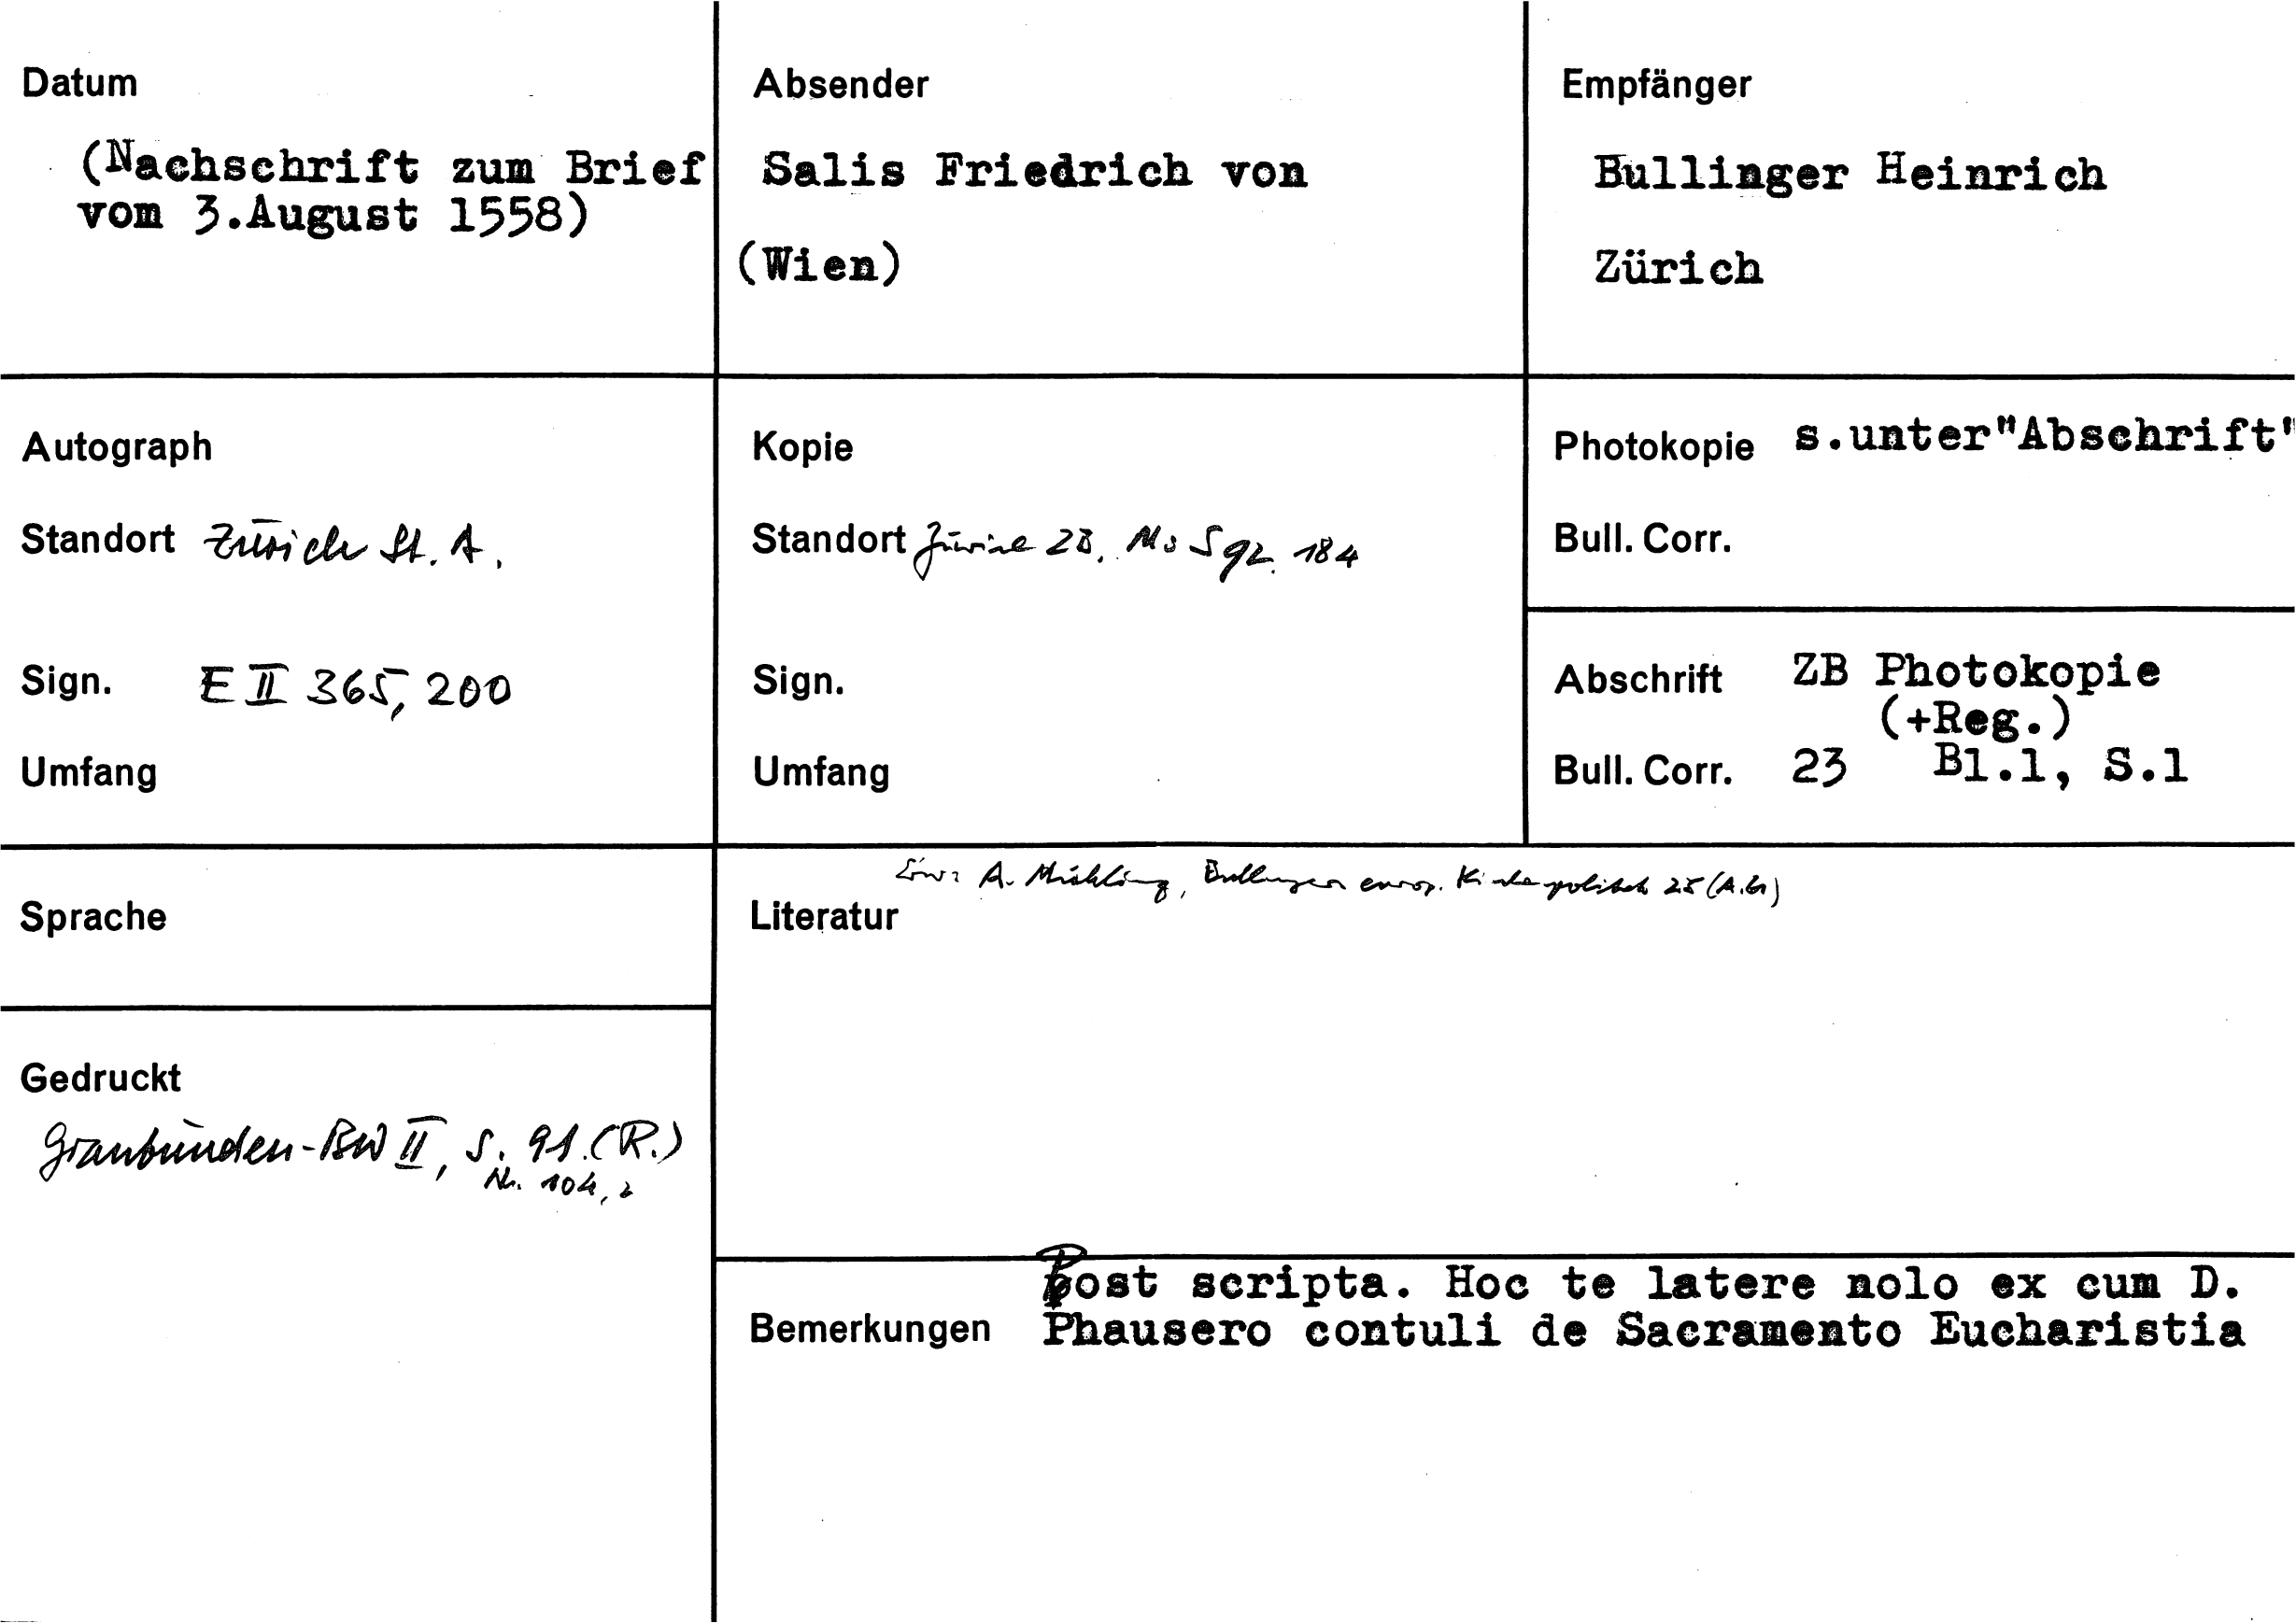 Datum
(Nachschrift zum Brief
vom 3.August 1558)
Absender
Salis Friedrich von
(Wien)
Empfänger
Bullinger Heinrich
Zürich
Autograph
Standort Zürich St. A.
Sign. E II 365, 200
Umfang
Kopie
Standort Zürich ZB. Ms S 92. 184
Sign.
Umfang
Photokopie s.unter"Abschrift"
Bull. Corr.
Abschrift ZB Photokopie
(+Reg.)
Bull. Corr. 23 Bl.1, S.1
Sprache
Gedruckt
Graubünden-BW II, S. 91. (R.)
Nr. 104, 2
A. Mühling, Bullingers europ. Kirchenpolitik 25
Literatur
Post scripta. Hoc te latere nolo ex cum D.
Bemerkungen Phausero contuli de Sacramento Eucharistia